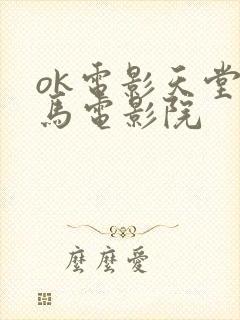 ok電影天堂
馬電影院
麼麼愛